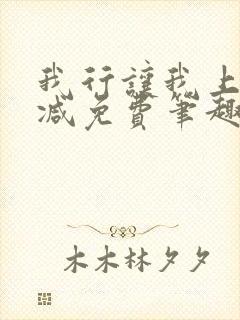 我行讓我上
减免費筆趣
木木林夕夕